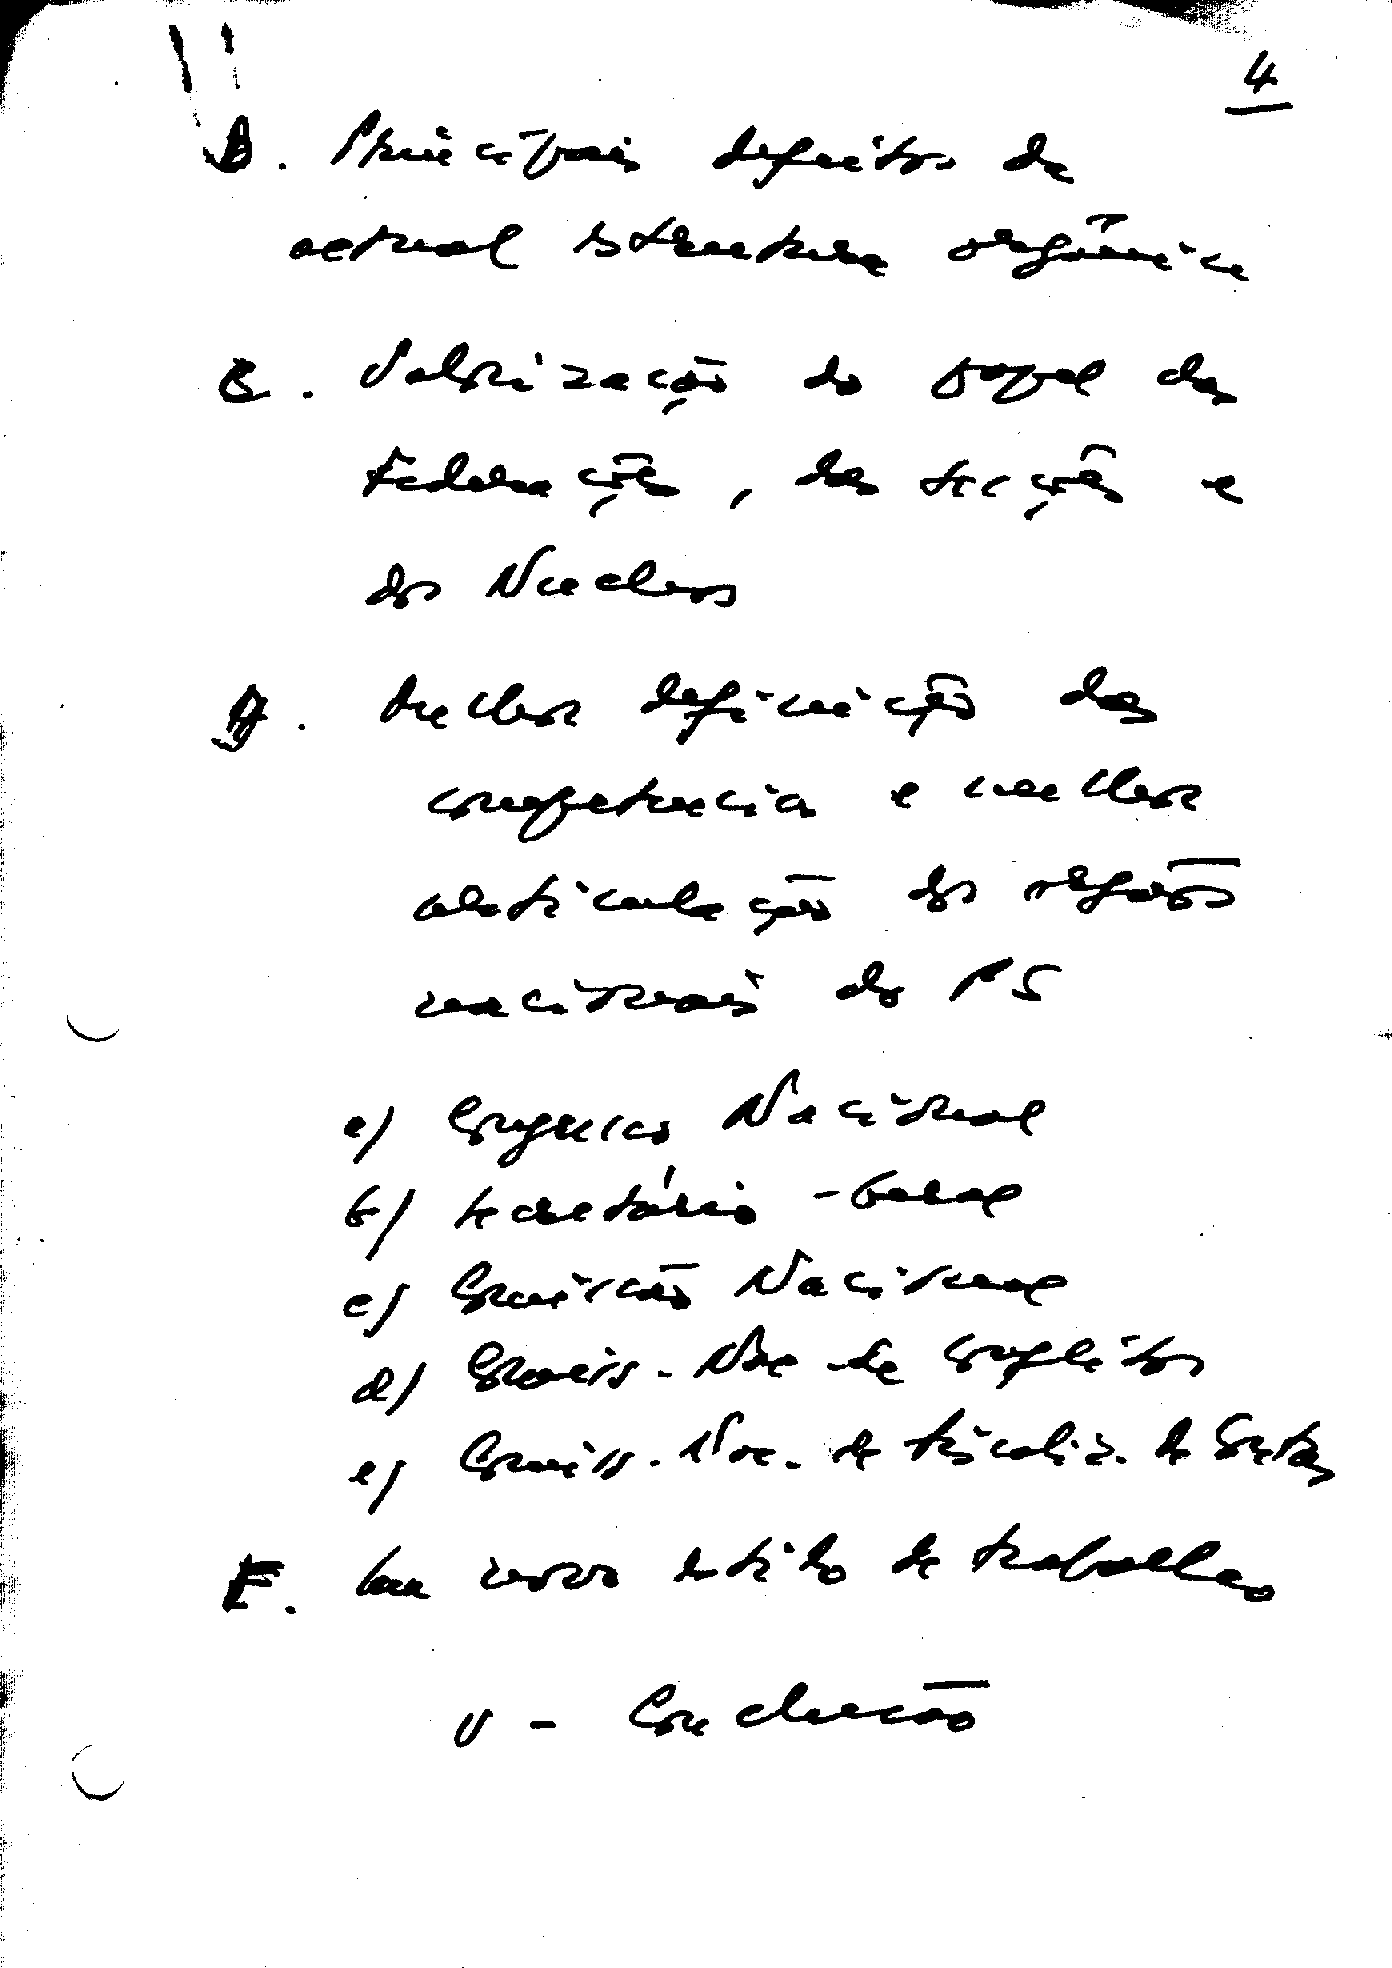 4
B. Principais defeitos da
actual estrutura orgânica
C. Valorização do papel das
Federações, das secções e
dos Núcleos
D. Melhor definição das
competência e melhor
articulação dos orgãos
nacionais do PS
a) Congresso Nacional
b) Secretário-Geral
c) Comissão Nacional
d) Comiss. Nac de Conflitos
e) Comiss. Nac. de Fiscaliz. de Contas
F. Um novo estilo de trabalho
V - Conclusão